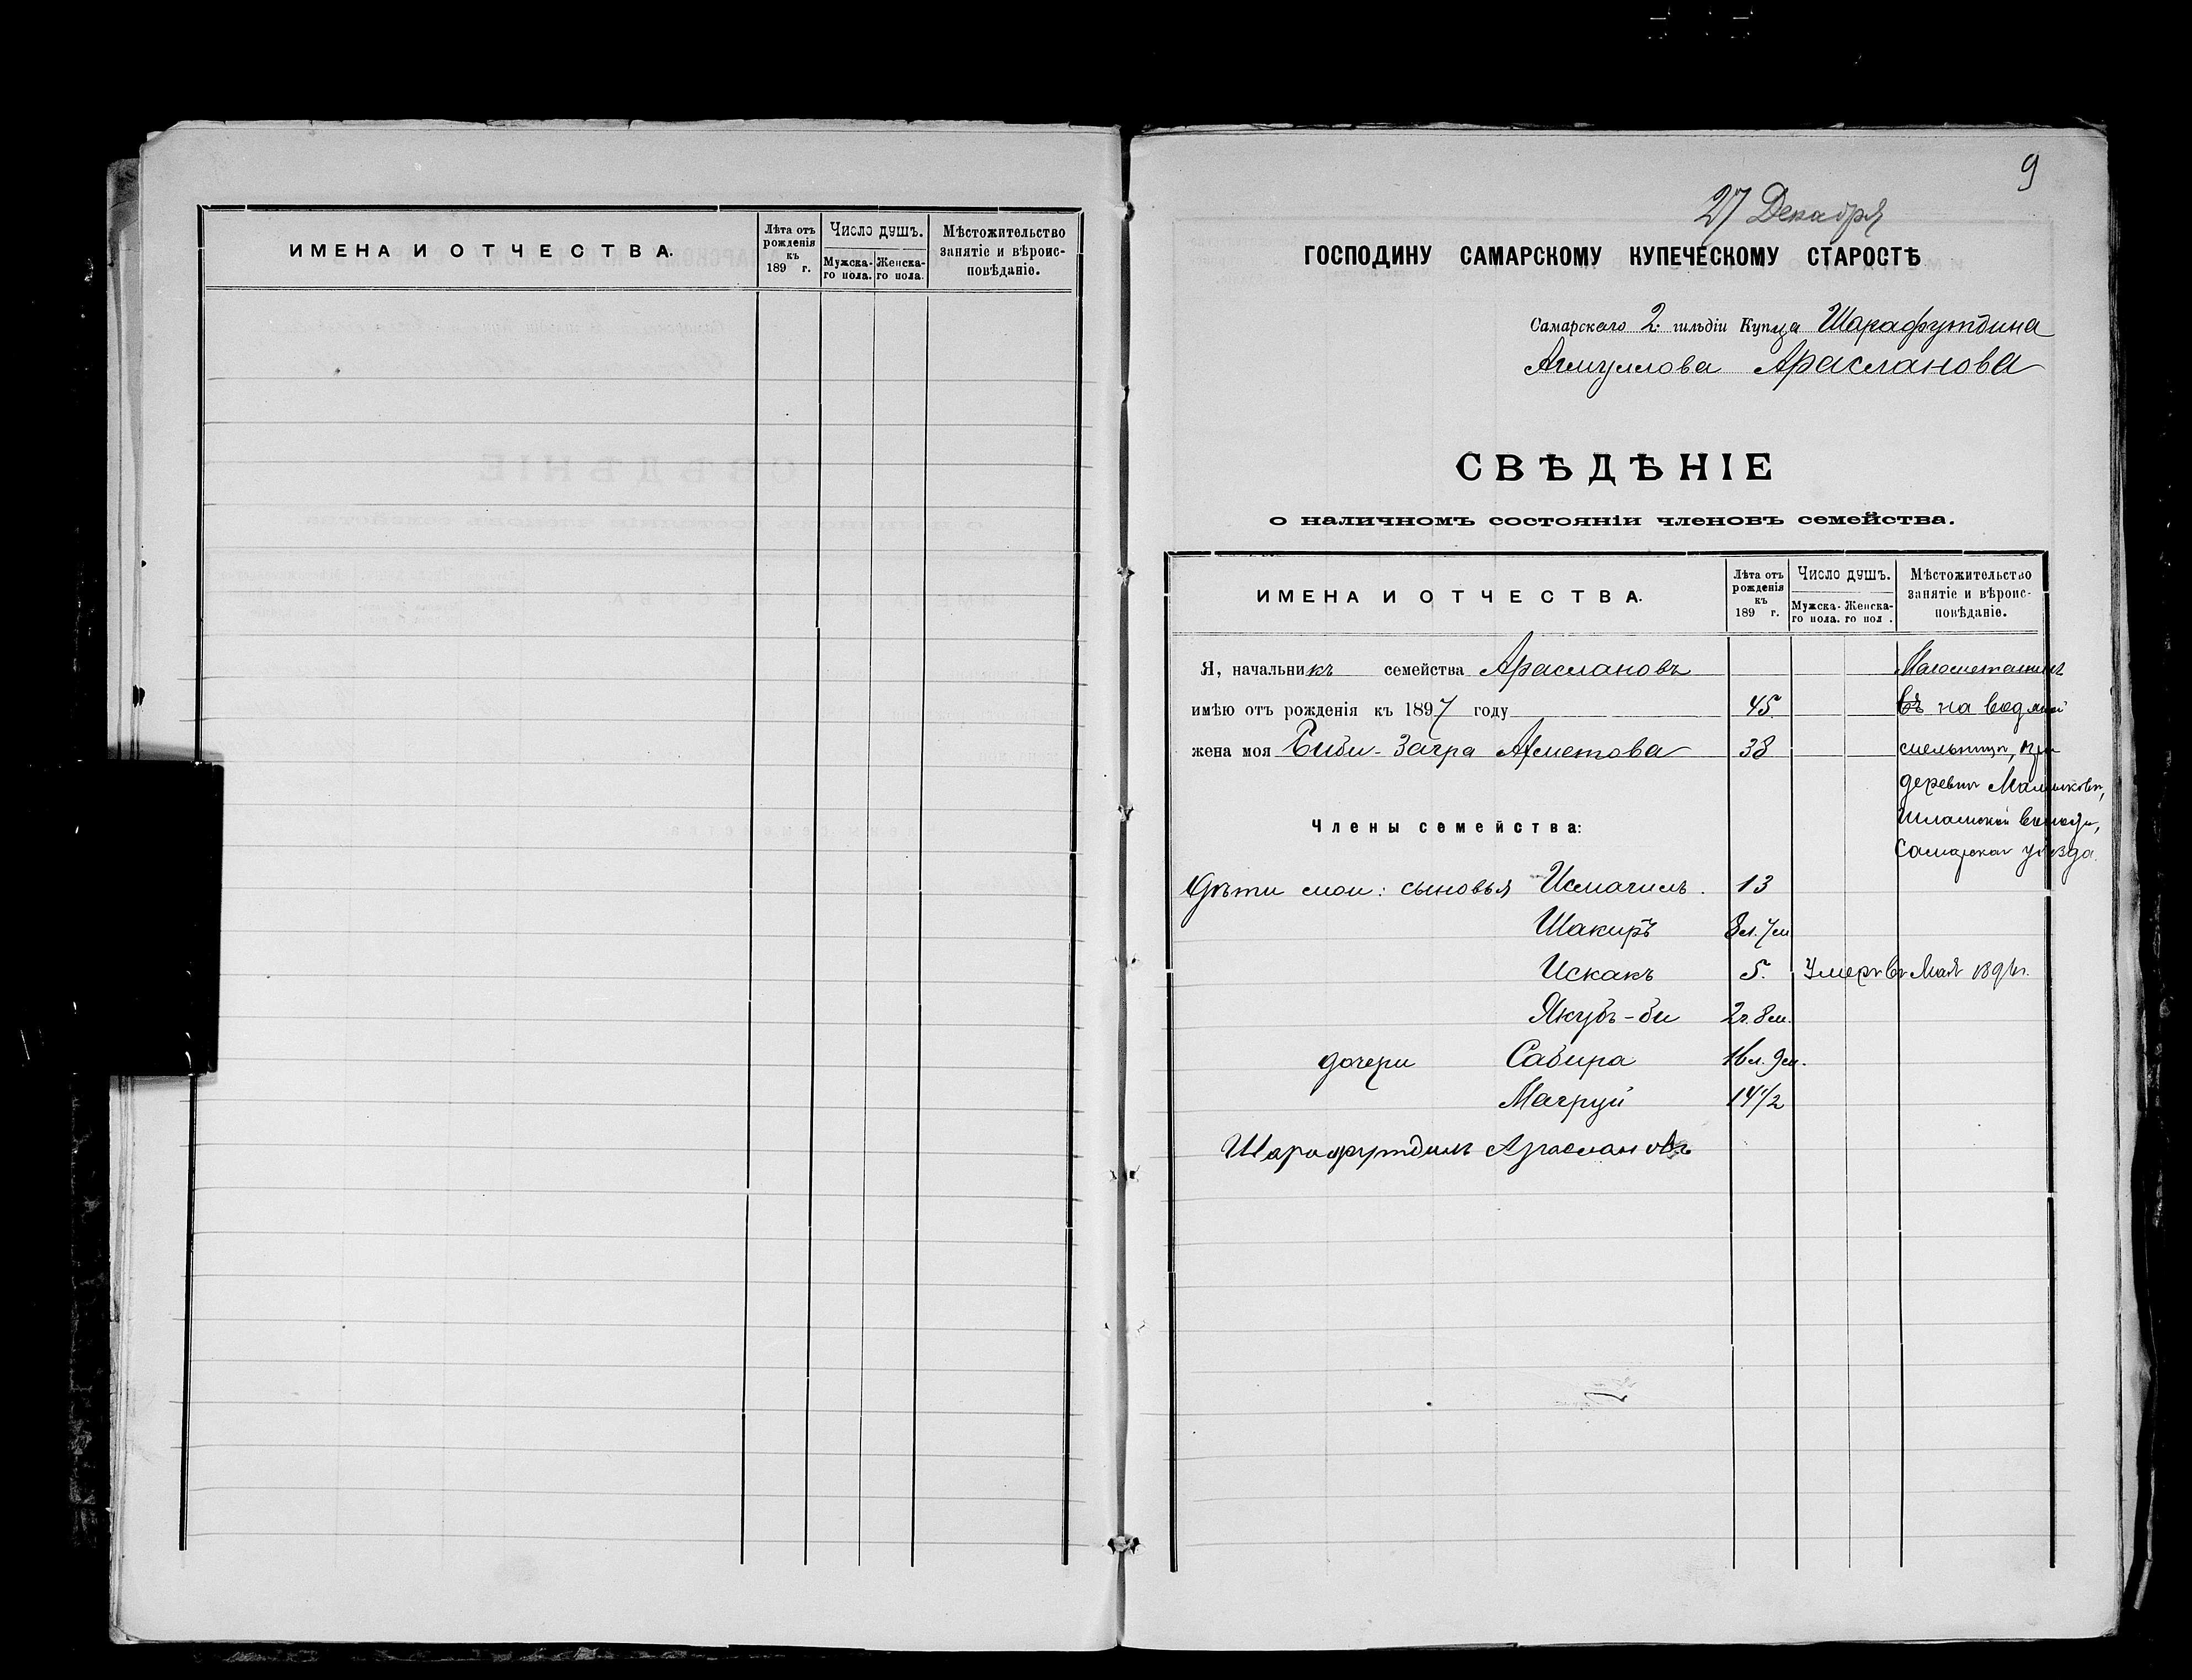 ИМЕНА И ОТЧЕСТВА.
Лѣта отъ рожденія къ 189 г.
Число душъ.
Мужска-го пола.
Женска-го пола.
Мѣстожительство занятіе и вѣроис-повѣданіе.
9
27 Декабря
ГОСПОДИНУ САМАРСКОМУ КУПЕЧЕСКОМУ СТАРОСТѢ
Самарскаго 2й гильдіи Купца Шарафутдина
Арасланова
СВѢДѢНІЕ
о наличномъ состояніи членовъ семейства.
ИМЕНА И ОТЧЕСТВА.
Лѣта отъ рожденія къ 189 г.
Число душъ.
Мужска-го пола.
Женска-го пол .
Мѣстожительство занятіе и вѣроис-повѣданіе.
Я, начальникъ семейства Араслановъ
имѣю отъ рожденія къ 1897 году 45
жена моя Биби-Загра Ахметова 38
Магометанинъ
на водяной
мельницѣ, при
деревнѣ
волости,
Самарскаго уѣзда.
Члены семейства:
Дѣти мои: сыновья Исмагилъ. 13
Шакиръ 8 л. 7 м
Искакъ 5. Умеръ въ Маѣ 1896 г.
Якубъ-би 2 г. 8 м.
дочери Сабира 16 л. 9 м.
Магруй 14 1/2
Шарафутдинъ Араслановъ